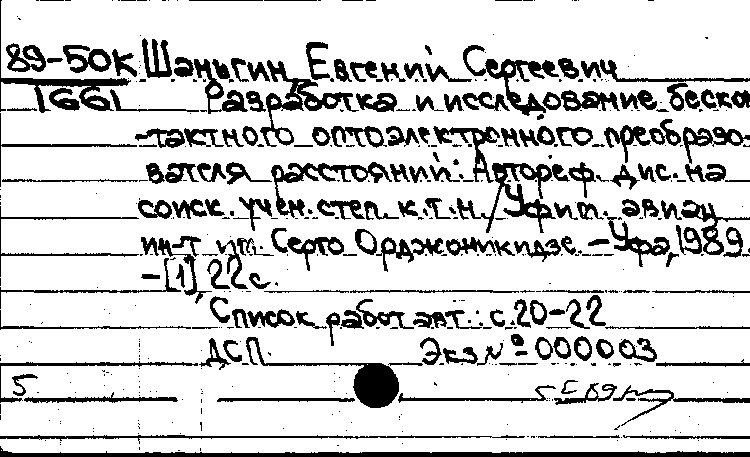 89-50к Шаньгин, Евгений Сергеевич
1661 Разработка и исследование беско
-тактного оптоэлектронного преобразо-
вателя расстояний: Автореф. дис. на
соиск. учен. степ. к.т.н. / Уфим. авиац
ин-т им. Серго Орджоникидзе. - Уфа, 1989.
- [1], 22 с.
Список работ авт.: с. 20-22
ДСП. Экз № 000003
5